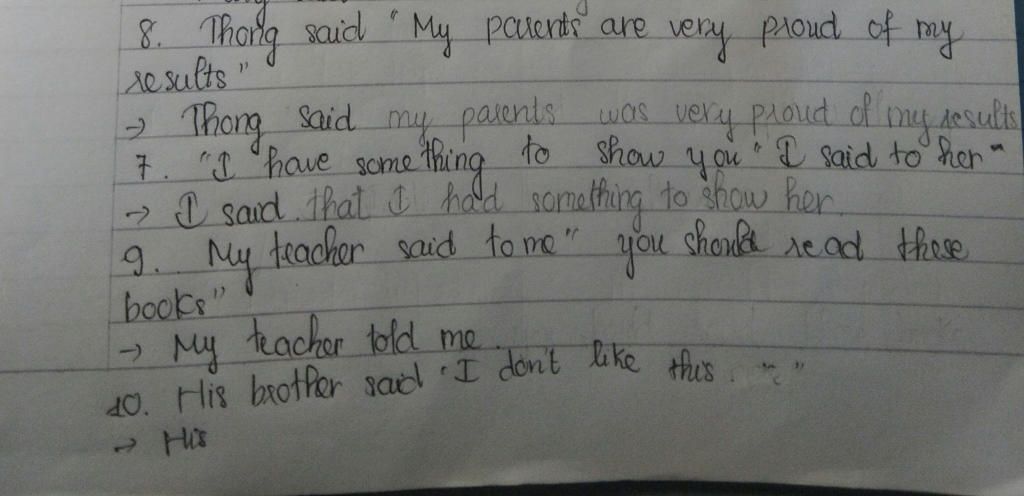 8. Thong said " My parents are very proud of my
results "
→ Thong said my parents was very proud of my results
7. "I have something to show you" I said to her"
→ I said that I had something to show her.
9. My teacher said to me" you should read these
books"
→ My teacher told me.
10. His brother said "I don't like this. "
→ His